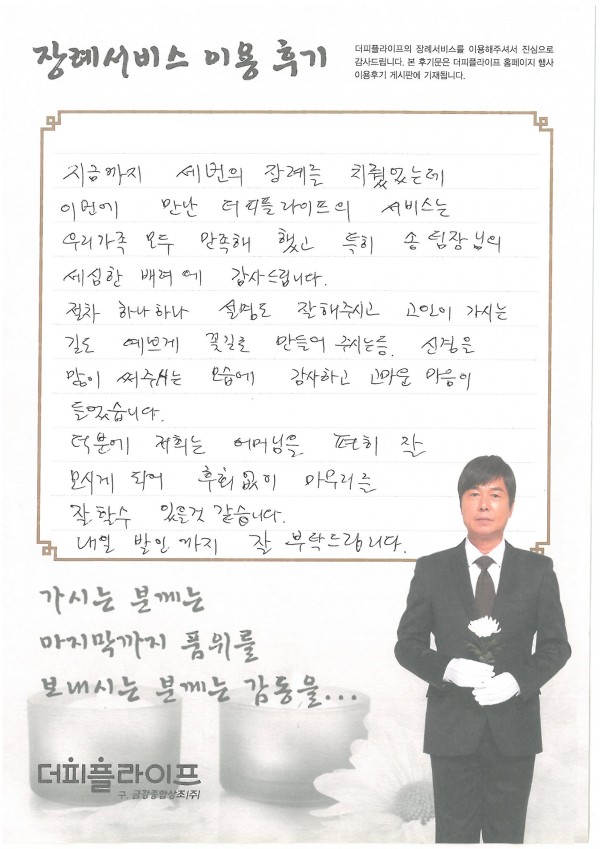 장례서비스 이용 후기
더피플라이프의 장례서비스를 이용해주셔서 진심으로
감사드립니다. 본 후기문은 더피플라이프 홈페이지 행사
이용후기 게시판에 기재됩니다.
지금까지 세번의 장례를 치뤘었는데
이번에 만난 더피플라이프의 서비스는
우리가족 모두 만족해 했고 특히 송팀장님의
세심한 배려에 감사드립니다.
절차 하나하나 설명도 잘해주시고 고인이 가시는
길도 예쁘게 꽃길로 만들어 주시는등. 신경을
많이 써주시는 모습에 감사하고 고마운 마음이
들었습니다.
덕분에 저희는 어머님을 편히 잘
모시게 되어 후회없이 마무리를
잘 할수 있을것 같습니다.
내일 발인까지 잘 부탁드립니다.
가시는 분께는
마지막까지 품위를
보내시는 분께는 감동을...
더피플라이프
구. 금강종합상조(주)